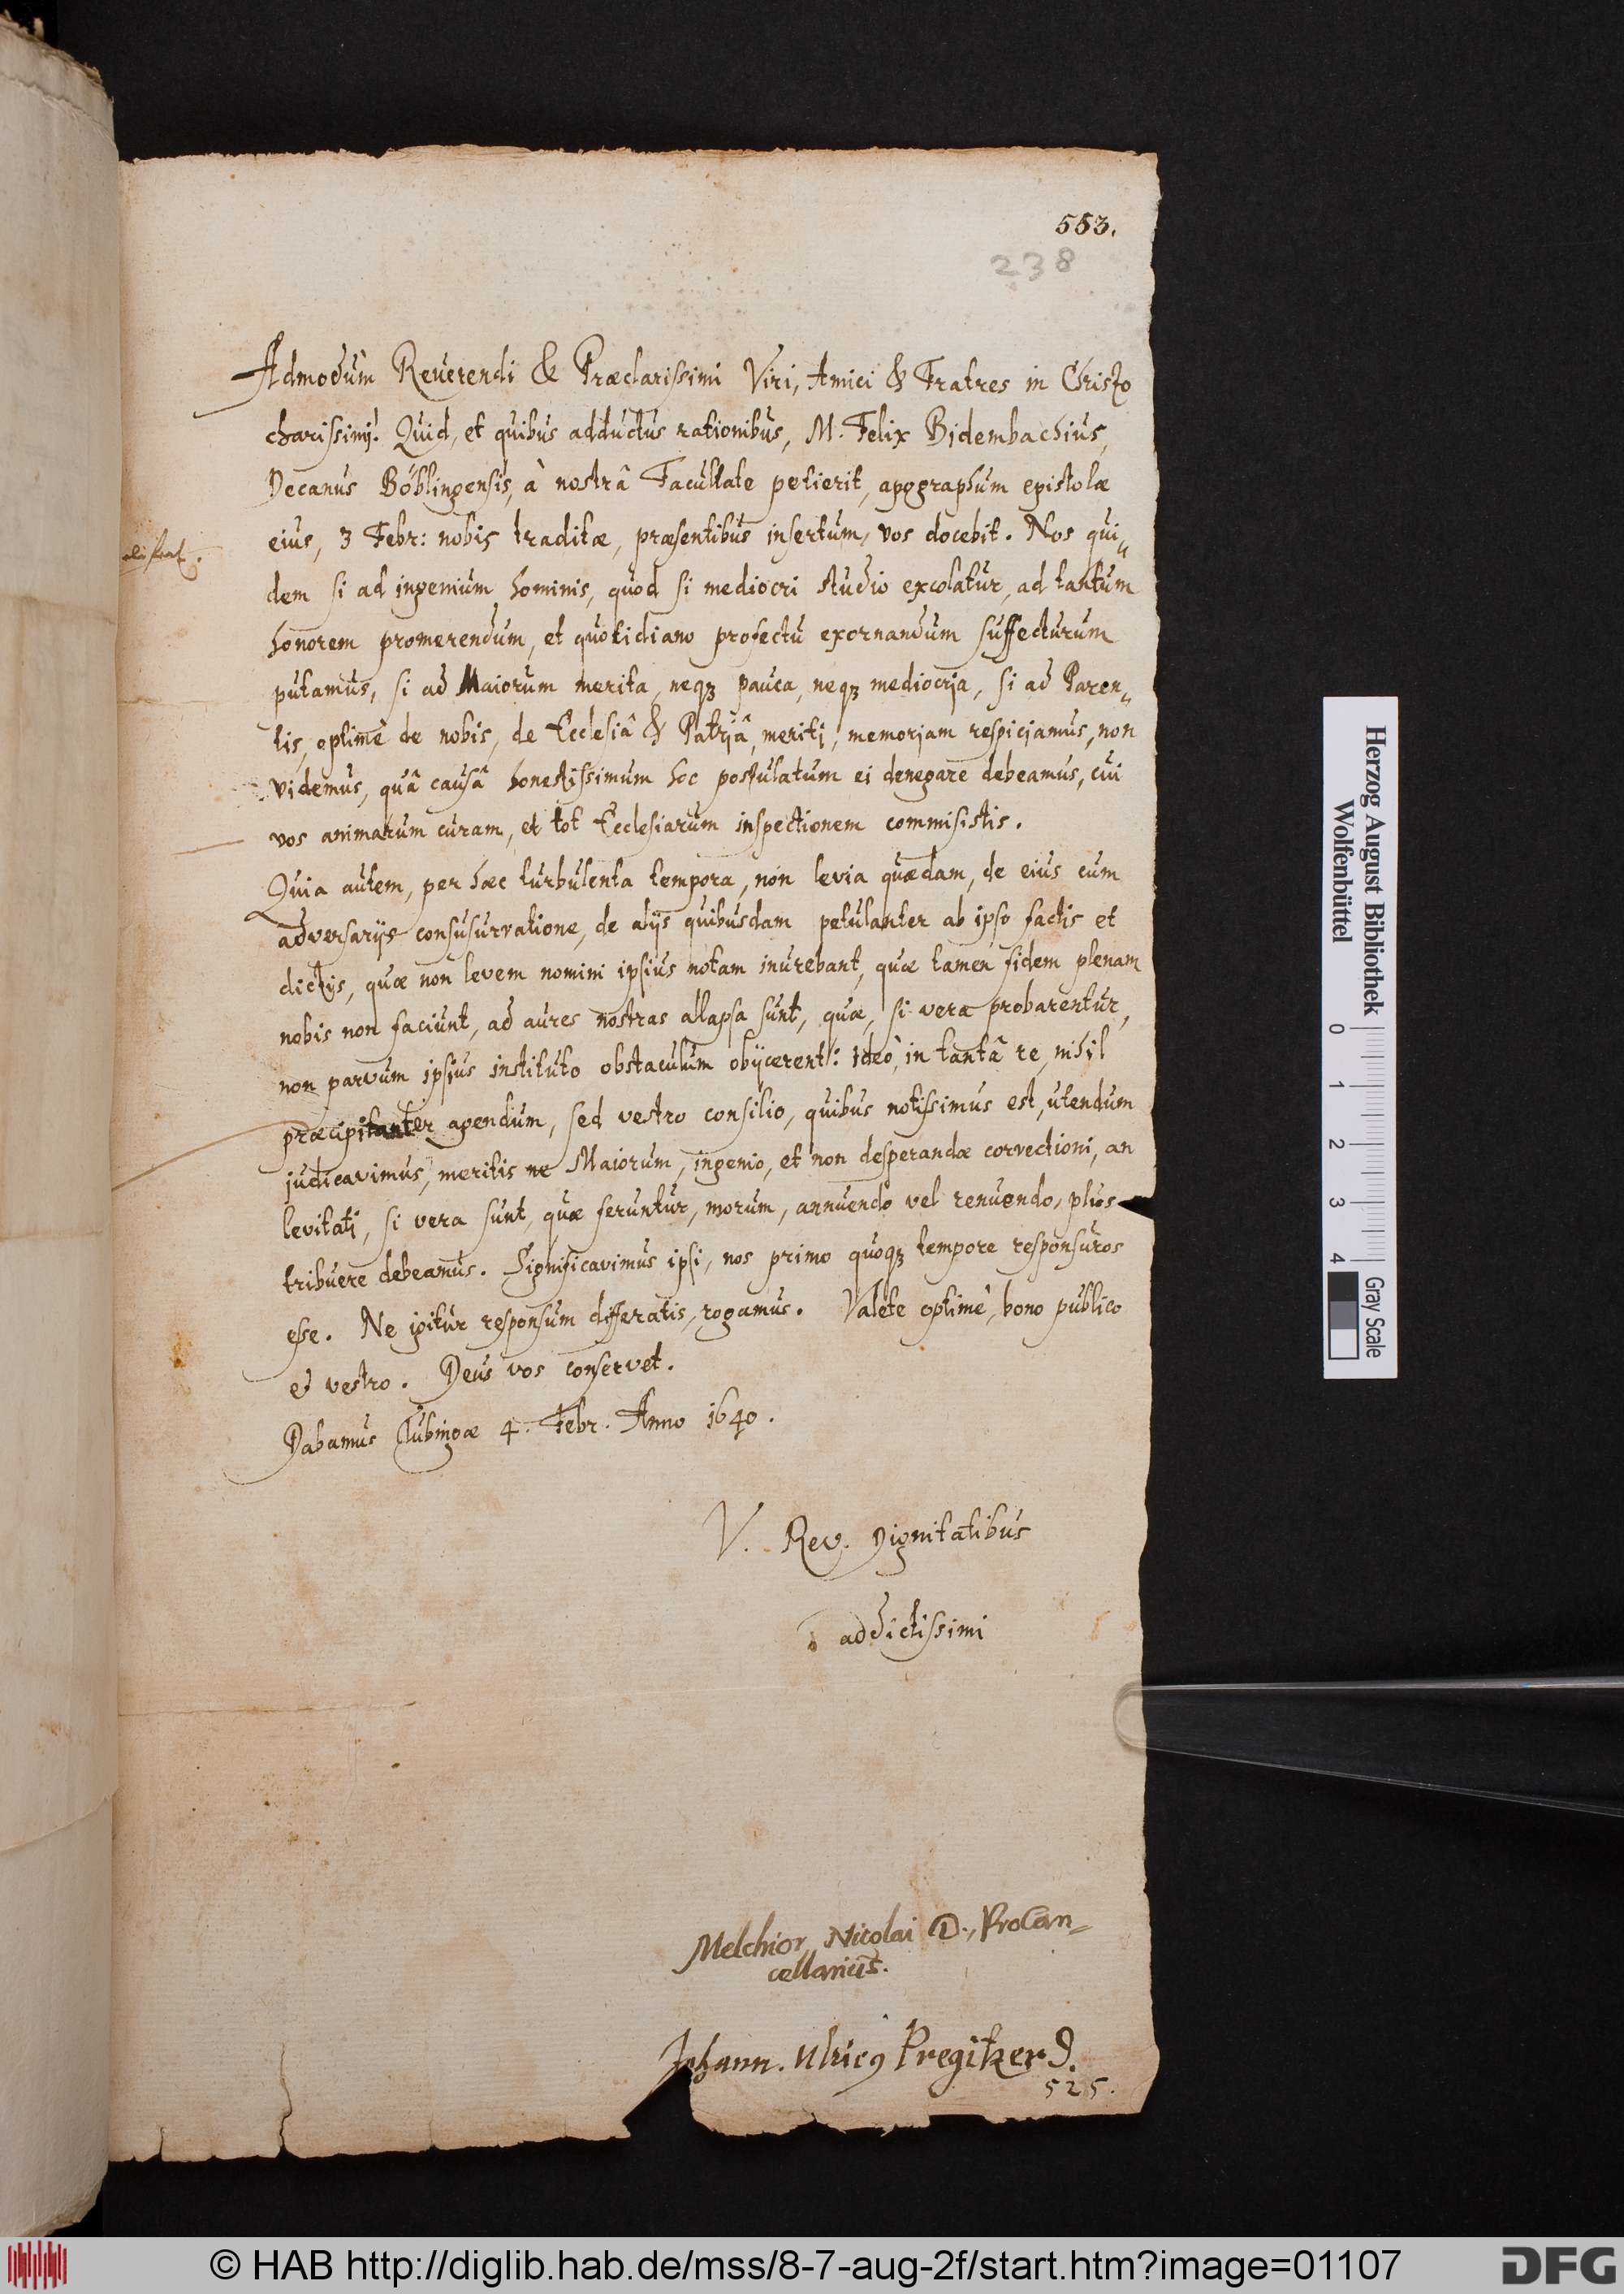 553.
238
Admodum Reverendi & Præclarissimi Viri, Amici & Fratres in Christo
charissimi! Quid, et quibus adductus rationibus, M. Felix Bidembachius,
Decanus Böblingensis, à nostrâ Facultate petierit, apographum epistolæ
eius, 3 Febr: nobis traditæ, præsentibus insertum, vos docebit. Nos qui„
dem si ad ingenium hominis, quod si mediocri studio excolatur, ad tantum
honorem promerendum, et quotidiano profectu exornandum suffecturum
putamus, si ad Maiorum merita, neqʒ pauca, neqʒ mediocria, si ad Paren„
tis, optimè de nobis, de Ecclesiâ & Patriâ, meriti, memoriam respiciamus, non
videmus, quâ causâ honestissimum hoc postulatum ei denegare debeamus, cui
vos animarum curam, et tot Ecclesiarum inspectionem commisistis.
Quia autem, per hæc turbulenta tempora, non levia quædam, de eius cum
adversarijs consusurratione, de alijs quibusdam petulanter ab ipso factis et
dictis, quæ non levem nomini ipsius notam inurebant, quæ tamen fidem plenam
nobis non faciunt, ad aures nostras allapsa sunt, quæ, si vera probarentur,
non parvum ipsius instituto obstaculum obijcerent: Ideò, in tantâ re, nihil
præcipitanter agendum, sed vestro consilio, quibus notissimus est, utendum
judicavimus, meritis ne Maiorum, ingenio, et non desperandæ correctioni, an
levitati, si vera sunt, quæ feruntur, morum, annuendo vel renuendo, plus
tribuere debeamus. Significavimus ipsi, nos primo quoqʒ tempore responsuros
esse. Ne igitur responsum differatis, rogamus. Valete optimè, bono publico
et vestro. Deus vos conservet.
Dabamus Tubingæ 4. Febr. Anno 1640.
V. Rev. Dignitatibus
addictissimi
Melchior Nicolai D., ProCan=
cellarius.
Johann. Ulricꝰ Pregitzer D.
525.
Herzog August Bibliothek
Wolfenbüttel
0 1 2 3 4
Gray Scale
© HAB http://diglib.hab.de/mss/8-7-aug-2f/start.htm?image=01107
DFG